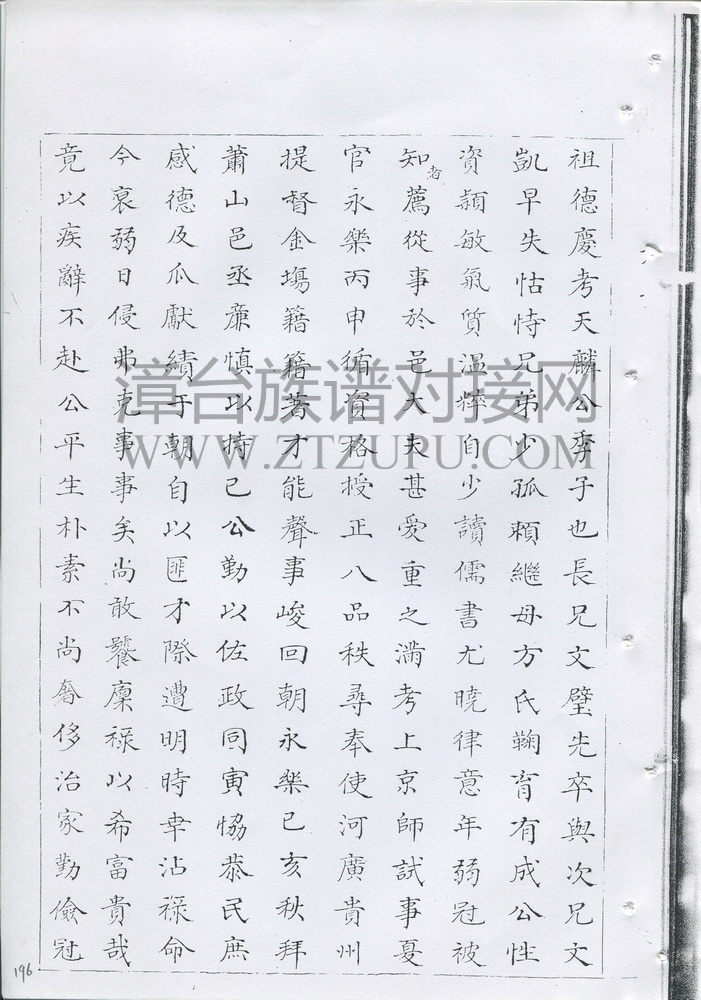 祖德慶考天麟公季子也長兄文璧先卒與次兄文
凱早失怙恃兄弟少孤賴繼母方氏鞠育有成公性
資頴敏氣質溫粹自少讀儒書尤曉律意年弱冠被
知者薦從事於邑大夫甚愛重之滿考上京師試事憂
官永樂丙申循資格授正八品秩尋奉使河廣貴州
提督金場籍籍著才能聲事峻回朝永樂己亥秋拜
蕭山邑丞亷慎以持己公勤以佐政同寅恊恭民庶
感德及瓜獻績于朝自以匪才際遭明時幸沾祿命
今衰弱日侵弗克事事矣尚敢饕廩祿以希富貴哉
竟以疾辭不赴公平生朴素不尚奢侈治家勤儉冠
196
漳台族谱对接网
WWW.ZTZUPU.COM